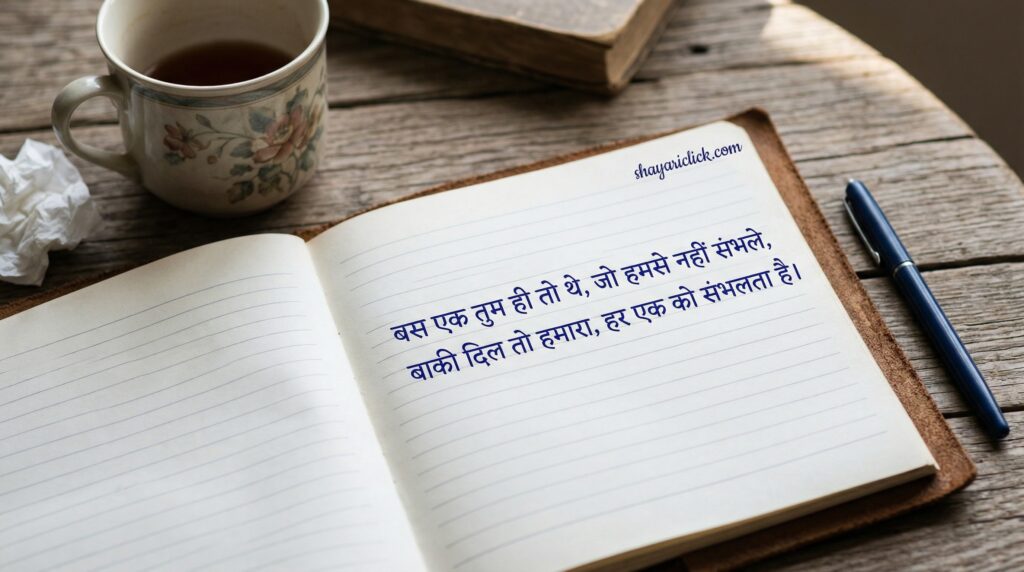 shayariclick.com
बस एक तुम ही तो थे, जो हमसे नहीं संभले,
बाकी दिल तो हमारा, हर एक को संभलता है।